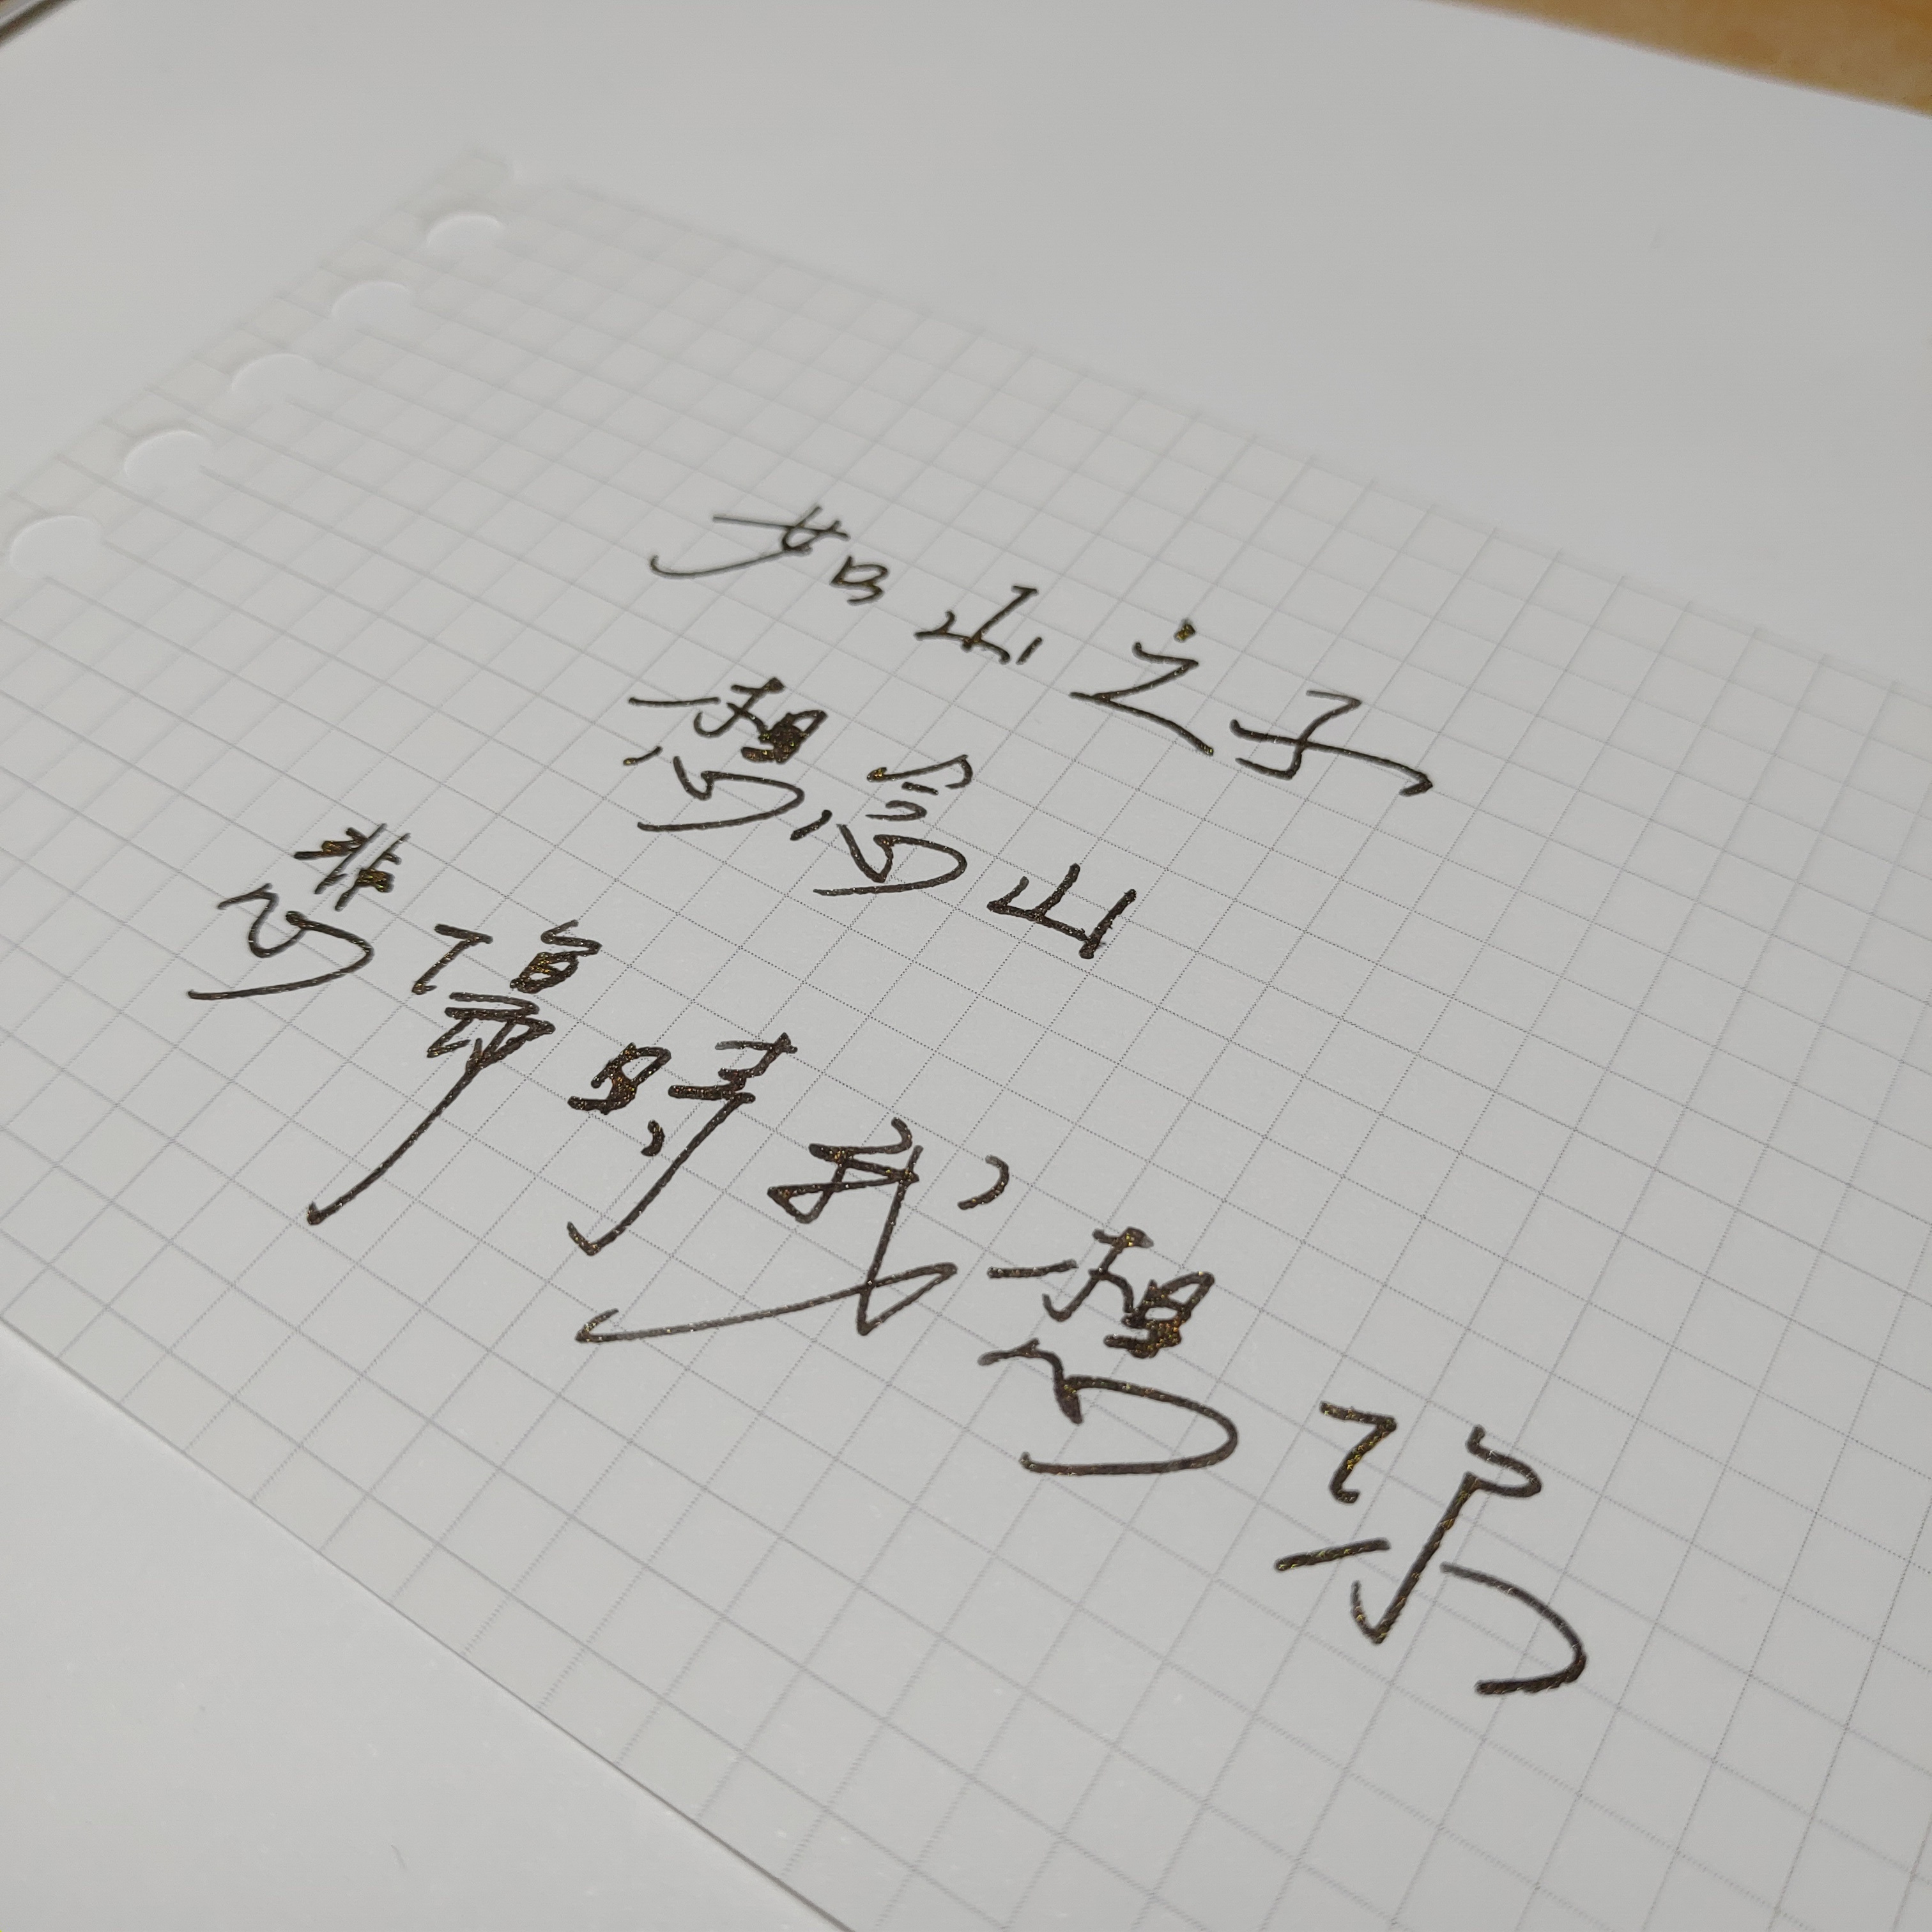 如山之子
想念山
悲傷時我想你